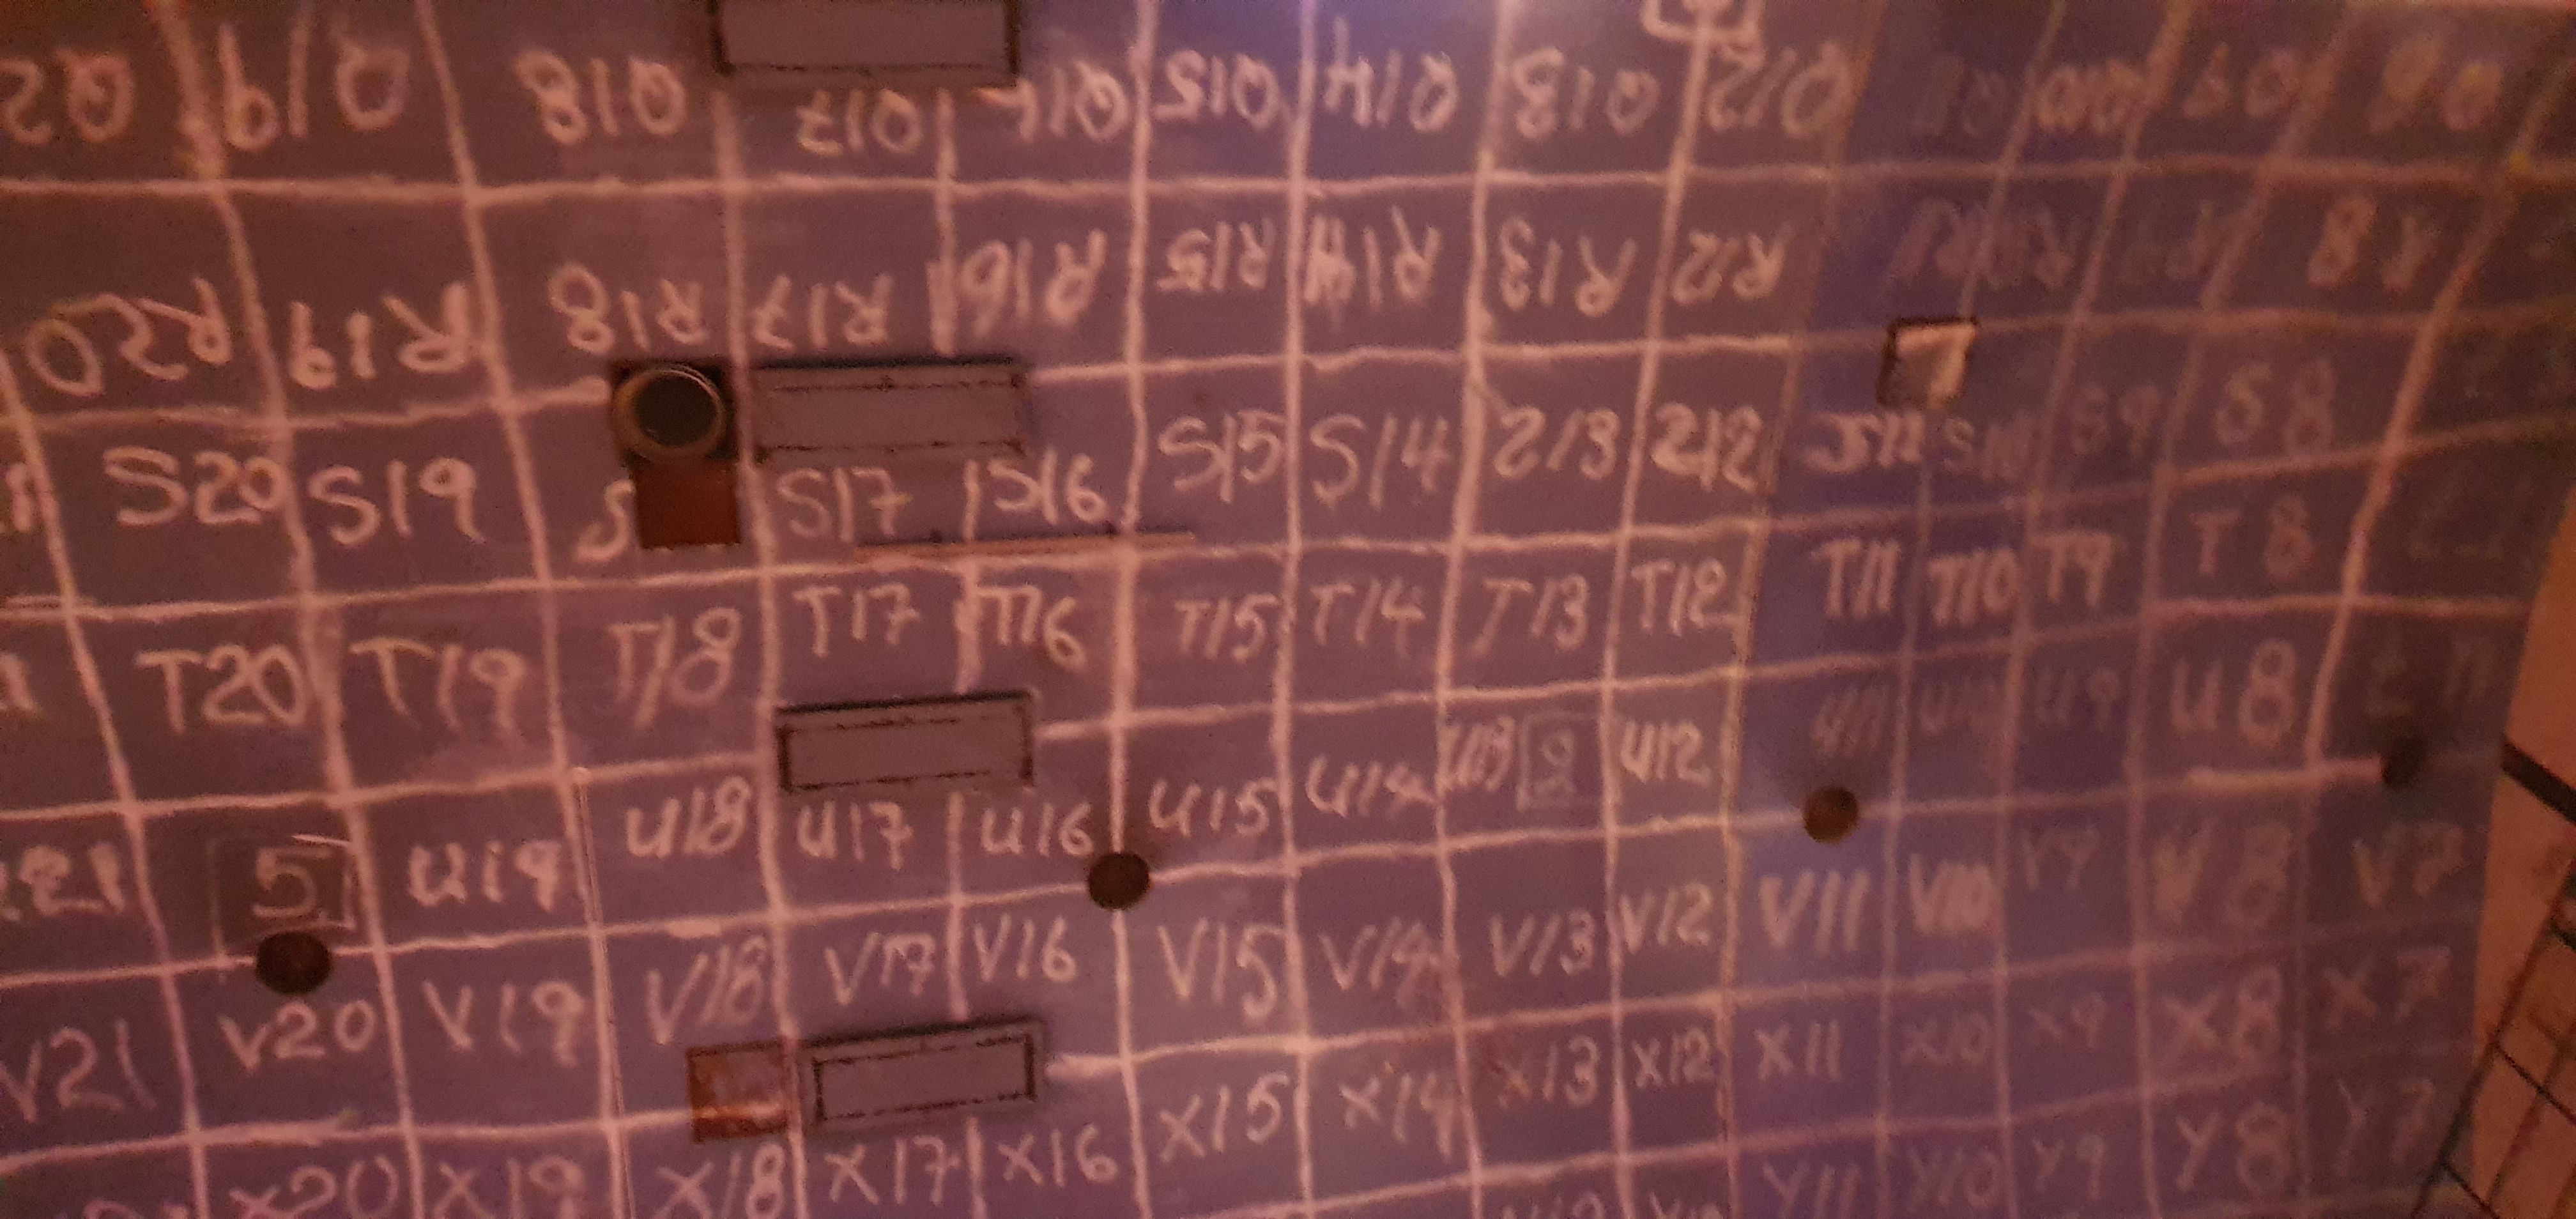 Q19 Q18 Q17 Q16 Q15 Q14 Q13 Q12 Q10
R20 R19 R18 R17 R16 R15 R14 R13 R12 R8
S20 S19 S S17 S16 S15 S14 S13 S12 S11 S10 S9 S8
T20 T19 T18 T17 T16 T15 T14 T13 T12 T11 T10 T9 T8
5 U19 U18 U17 U16 U15 U14 U13 8 U12 U11 U10 U9 U8
V21 V20 V19 V18 V17 V16 V15 V14 V13 V12 V11 V10 V9 V8 V7
X20 X19 X18 X17 X16 X15 X14 X13 X12 X11 X10 X9 X8 X7
Y11 Y10 Y9 Y8 Y7